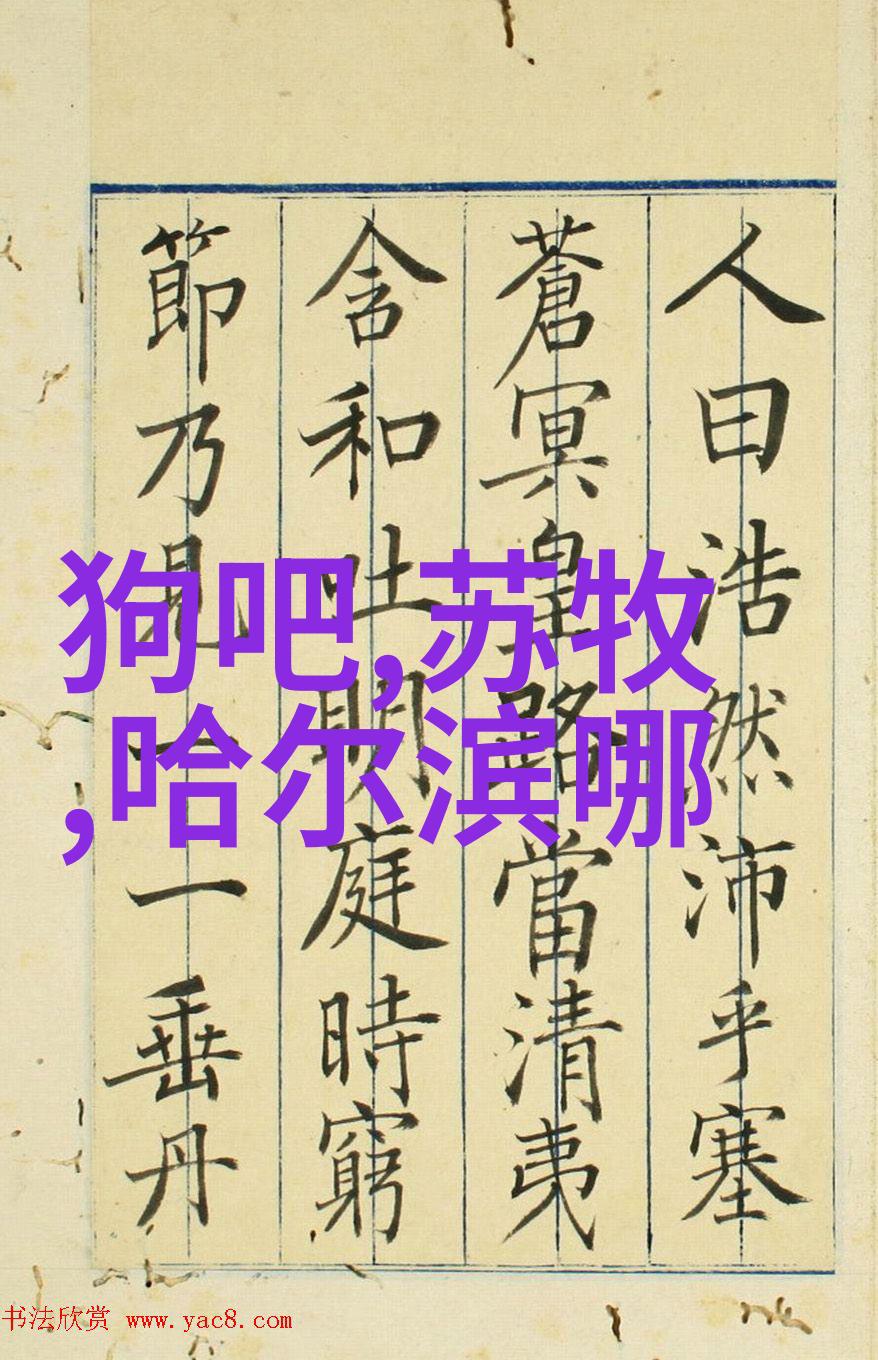 人曰浩然沛乎塞
蒼冥皇路當清夷
含和吐明庭時窮
節乃見一一垂丹
狗吧,苏牧
,哈尔滨哪
书法欣赏 www.yac8.com